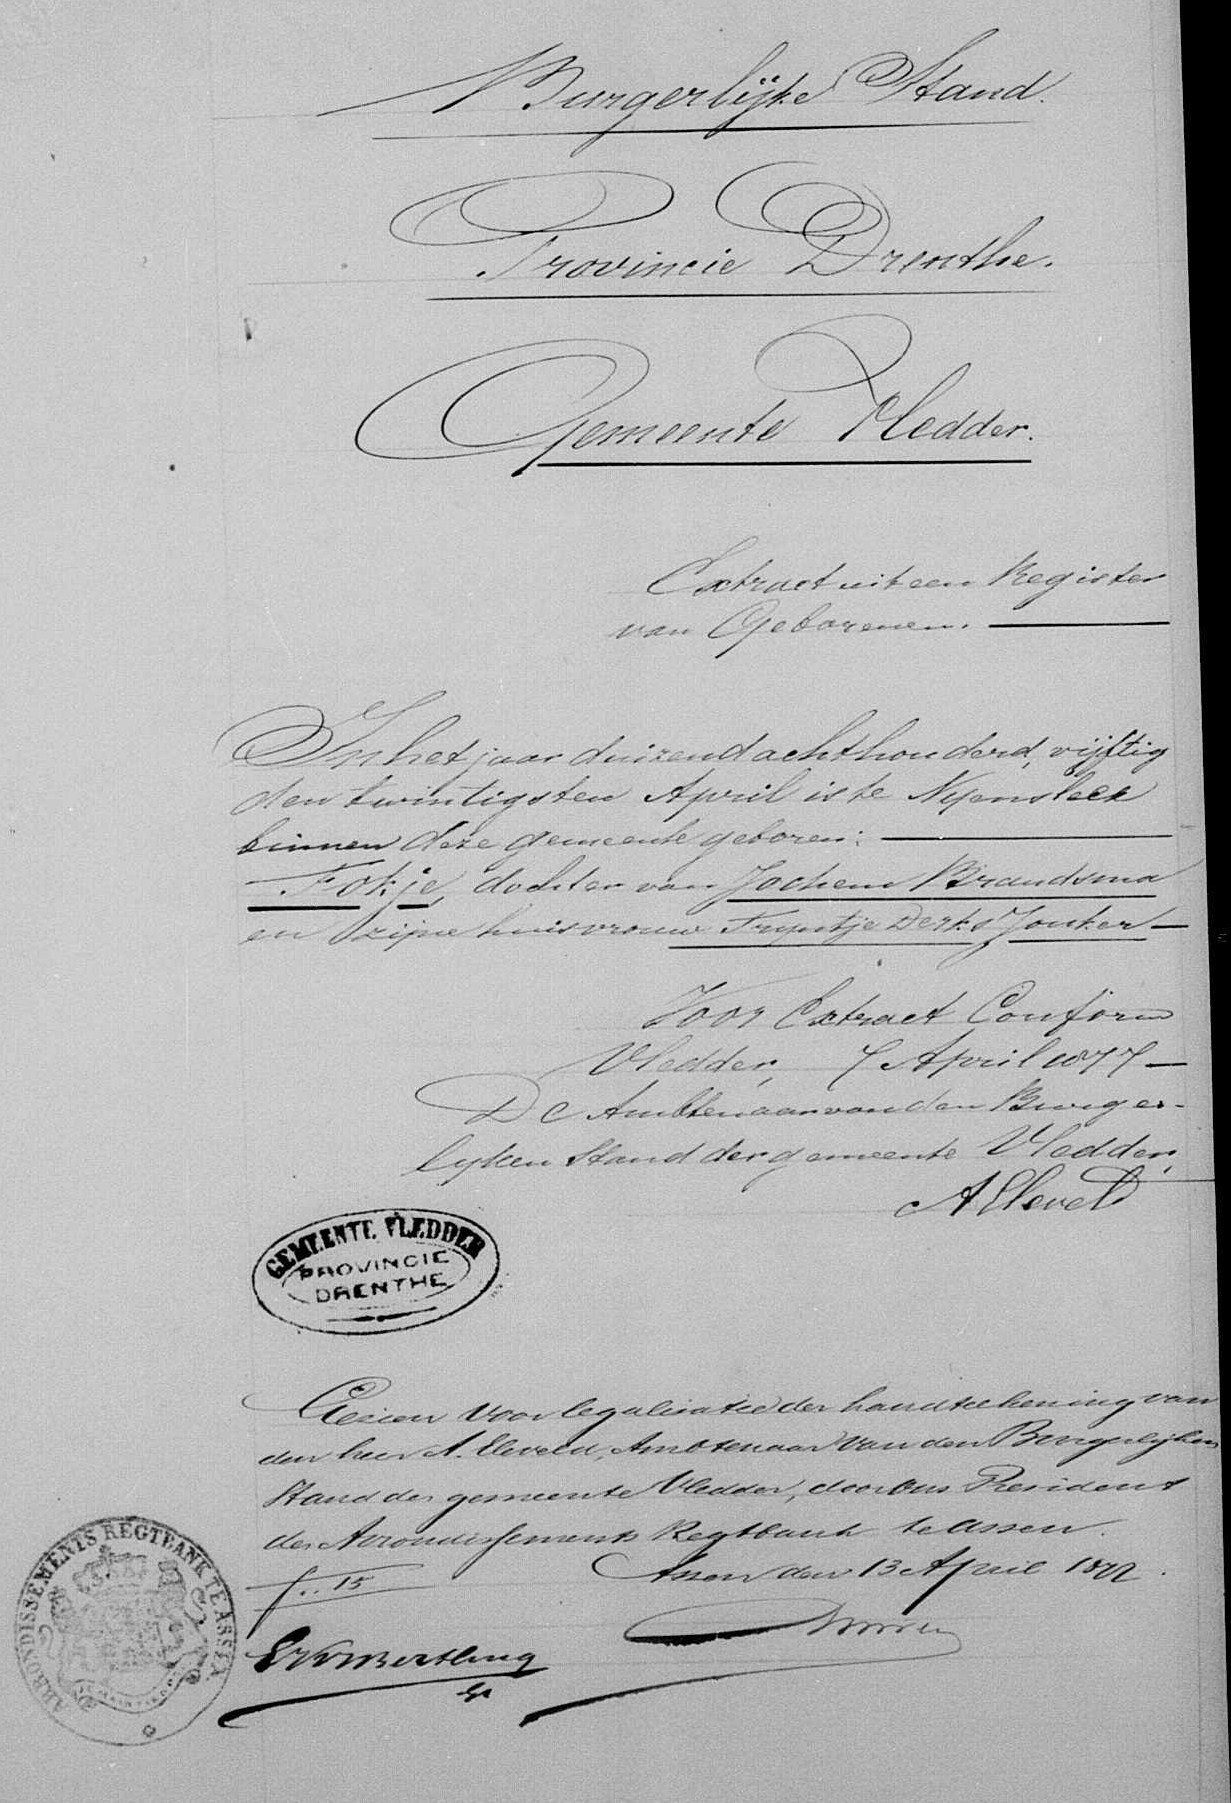 Burgerlijke Stand.
Provincie Drenthe.
Gemeente Vledder.
Extract uit een Register
van Geborenen.
In het jaar duizend achthonderd, vijftig
den twintigsten April is te Nijensleek
binnen deze gemeente geboren:
Fokje, dochter van Jochem Brandsma
en zijne huisvrouw Trijntje Derks Jonker
Voor Extract Conform
Vledder, 7 April 1877
De Ambtenaar van den Burger-
lyken Stand der gemeente Vledder,
A Eleveld
GEMEENTE VLEDDER
PROVINCIE
DRENTHE
Gezien voor legalisatie der handteekening van
den heer A. Eleveld, Ambtenaar van den Burgerlijken
Stand der gemeente Vledder, door ons President
der Arrondissements Regtbank te Assen.
Assen den 13 April 1877.
f.. 15
ARRONDISSEMENTS REGTBANK TE ASSEN